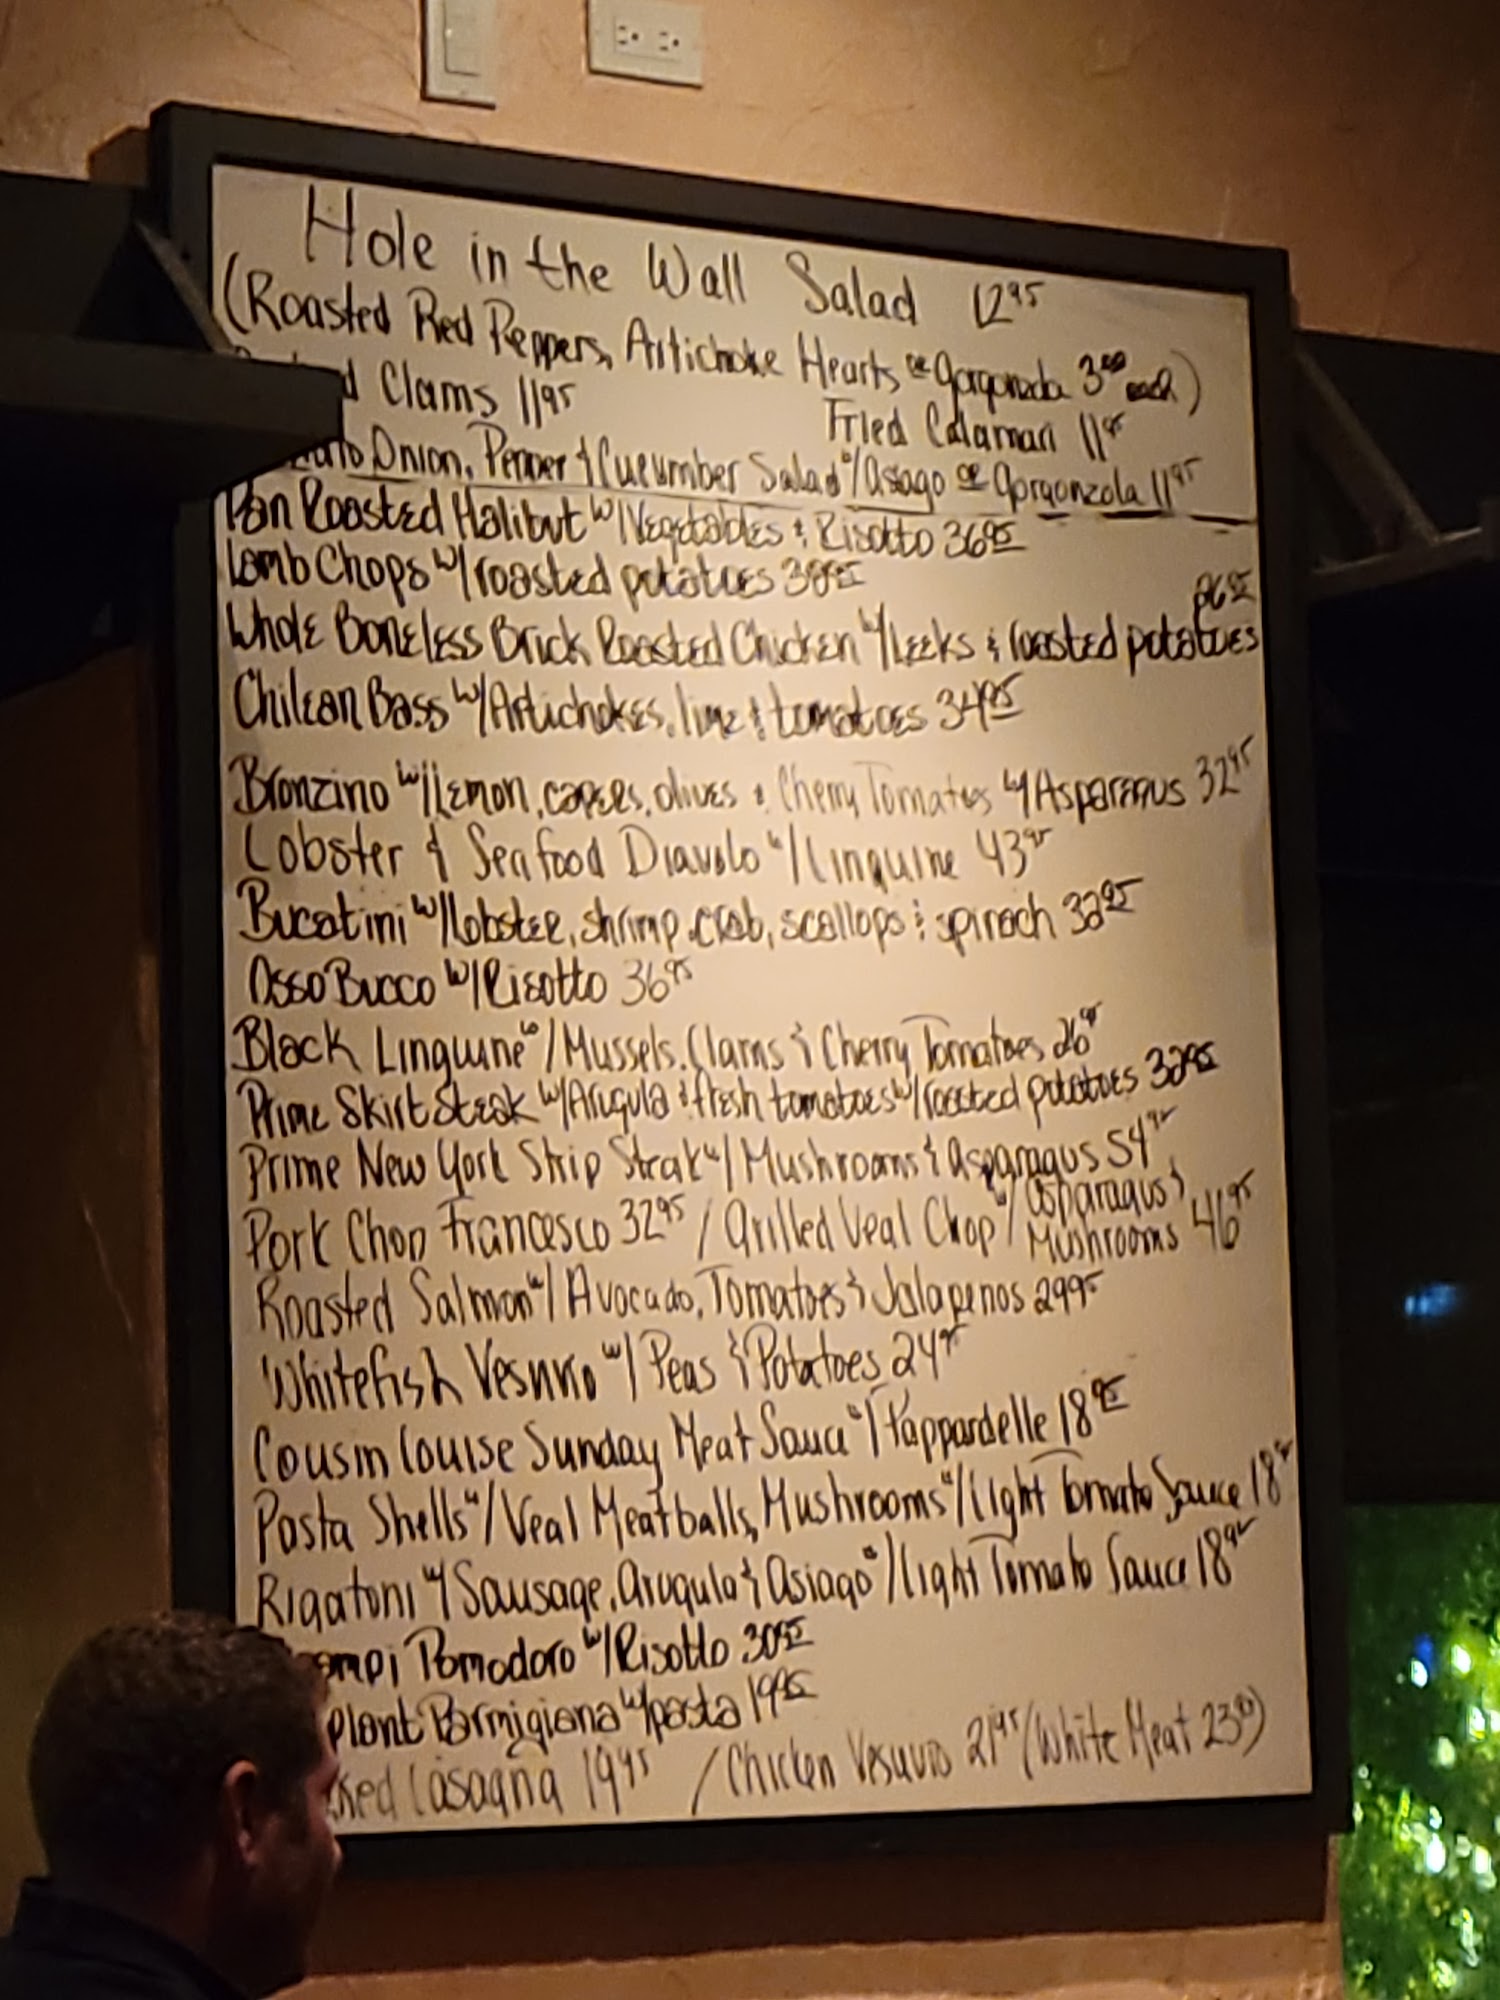 Hole in the Wall Salad 12⁹⁵
(Roasted Red Peppers, Artichoke Hearts or Gorgonzola 3⁰⁰ each)
Clams 11⁹⁵ Fried Calamari 11⁹⁵
Onion, Pepper & Cucumber Salad w/Asiago or Gorgonzola 11⁹⁵
Pan Roasted Halibut w/Vegetables & Risotto 36⁹⁵
Lamb Chops w/roasted potatoes 38⁹⁵
26⁹⁵
Whole Boneless Brick Roasted Chicken w/Leeks & roasted potatoes
Chilean Bass w/Artichokes, lime & tomatoes 34⁹⁵
Bronzino w/lemon, capers, olives & Cherry Tomatoes w/Asparagus 32⁹⁵
Lobster & Seafood Diavolo w/Linguine 43⁹⁵
Bucatini w/lobster, shrimp, crab, scallops & spinach 32⁹⁵
Osso Bucco w/Risotto 36⁹⁵
Black Linguine w/Mussels, Clams & Cherry Tomatoes 26⁹⁵
Prime Skirt Steak w/Arugula & fresh tomatoes w/roasted potatoes 32⁹⁵
Prime New York Strip Steak w/Mushrooms & asparagus 54⁹⁵
Pork Chop Francesco 32⁹⁵ / Grilled Veal Chop w/asparagus & Mushrooms 46⁹⁵
Roasted Salmon w/Avocado, Tomatoes & Jalapenos 29⁹⁵
Whitefish Vesuvio w/Peas & Potatoes 24⁹⁵
Cousin Louise Sunday Meat Sauce w/Pappardelle 18⁹⁵
Pasta Shells w/Veal Meatballs, Mushrooms w/light Tomato Sauce 18⁹⁵
Rigatoni w/Sausage, Arugula & Asiago w/light Tomato Sauce 18⁹⁵
Pomodoro w/Risotto 30⁹⁵
Parmigiana w/pasta 19⁹⁵
Lasagna 19⁹⁵ / Chicken Vesuvio 21⁹⁵ (White Meat 23⁹⁵)